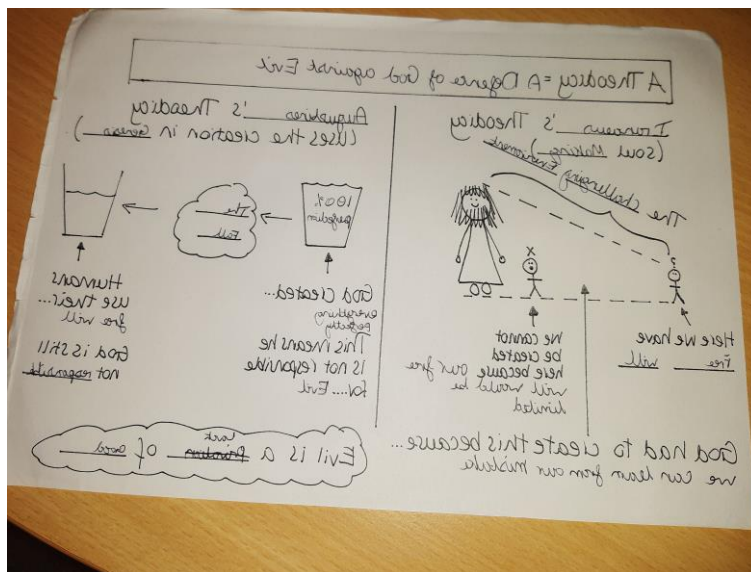 A Theodicy = A Defence of God against Evil
Irenaeus's Theodicy
(soul Making)
The challenging Environment
Here we have
Free will
We cannot
be created
here because our free
will would be
limited
God had to create this because...
we can learn from our mistake
Augustines's Theodicy
(Uses the creation in Genesis)
100%
perfection
The
Fall
God created...
everything
perfectly
This means he
is not responsible
for.... Evil
Humans
use their...
free will
God is still
not responsible
Evil is a lack of Good